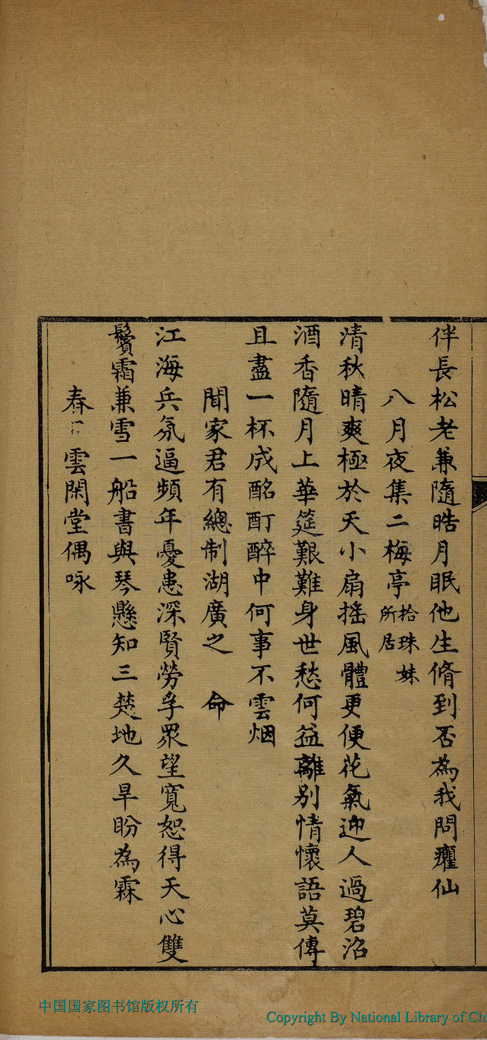 伴長松老兼隨皓月眠他生脩到否為我問癯仙
八月夜集二梅亭拾珠妹所居
清秋晴爽極於天小扇搖風體更便花氣迎人過碧沼
酒香隨月上華筵艱難身世愁何益離别情懷語莫傳
且盡一杯成酩酊醉中何事不雲烟
聞家君有總制湖廣之 命
江海兵氛逼頻年憂患深賢勞孚眾望寬恕得天心雙
鬢霜兼雪一船書與琴懸知三楚地久旱盼為霖
春日雲閑堂偶咏
中国国家图书馆版权所有
Copyright By National Library of Ch